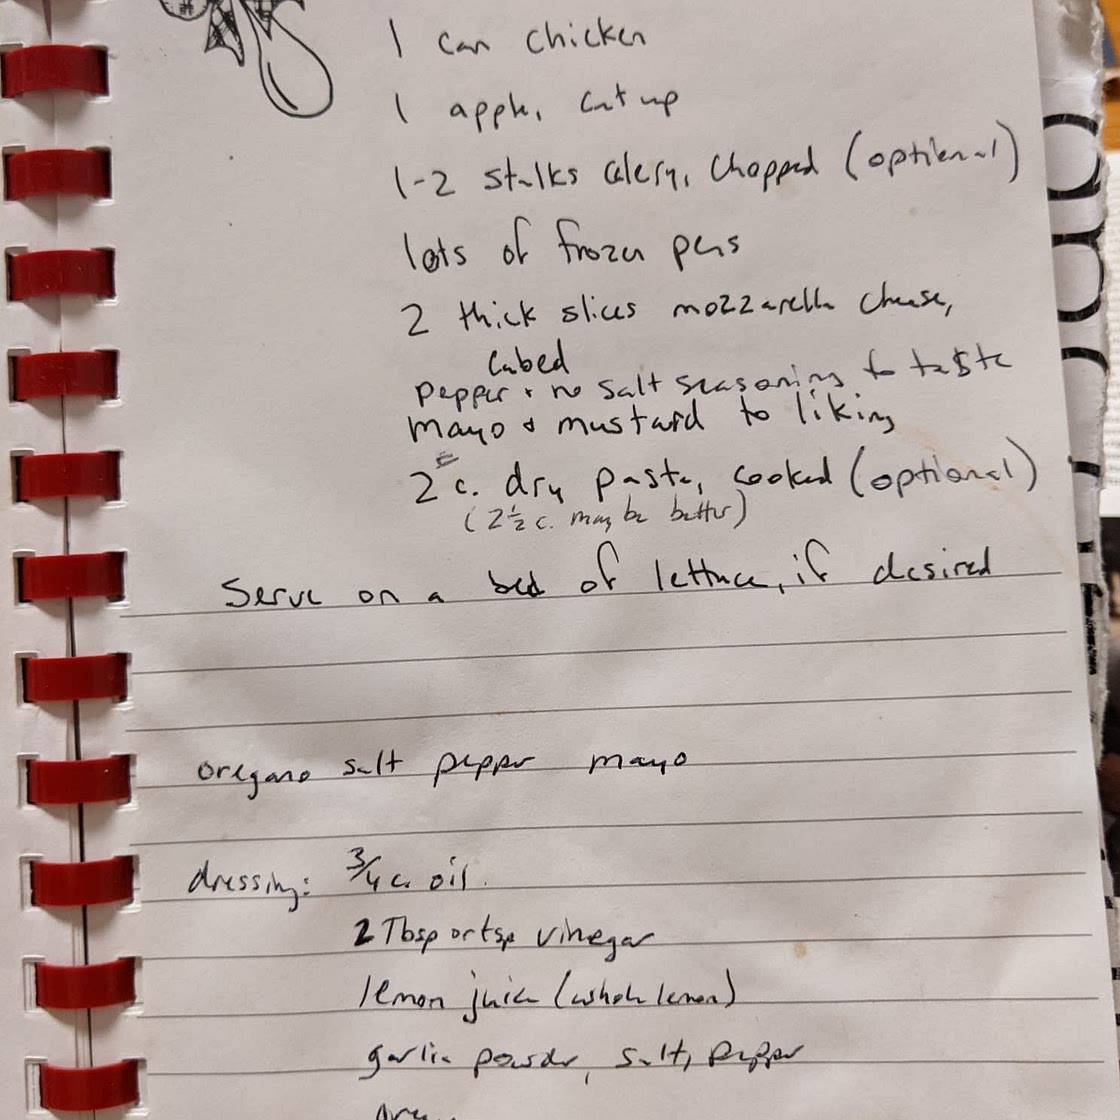 1 can chicken
1 apple, cut up
1-2 stalks celery, chopped (optional)
lots of frozen peas
2 thick slices mozzarella cheese,
cubed
pepper + no salt seasoning to taste
mayo & mustard to liking
2 c. dry pasta, cooked (optional)
(2½ c. may be better)
Serve on a bed of lettuce, if desired
oregano salt pepper mayo
dressing: ¾ c. oil.
2 Tbsp or tsp vinegar
lemon juice (whole lemon)
garlic powder, salt, pepper